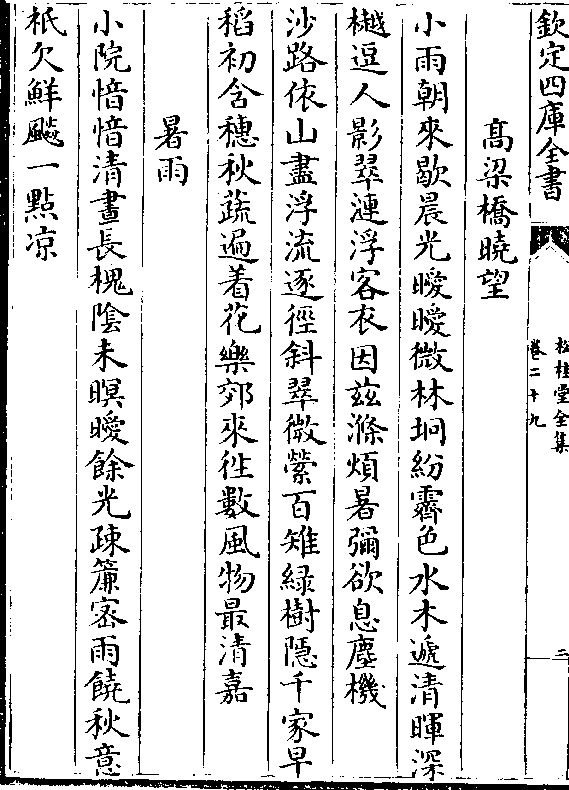 欽定四庫全書
松桂堂全集
卷二十九
三
髙梁橋曉望
小雨朝來歇晨光曖曖微林坰紛霽色水木遞清暉深
樾逗人影翠漣浮客衣因兹滌煩暑彌欲息塵機
沙路依山盡浮流逐徑斜翠微縈百雉緑樹隱千家早
稻初含穗秋蔬遍着花樂郊來徃數風物最清嘉
暑雨
小院愔愔清晝長槐陰未暝曖餘光疎簾宻雨饒秋意
祗欠鮮飈一點凉